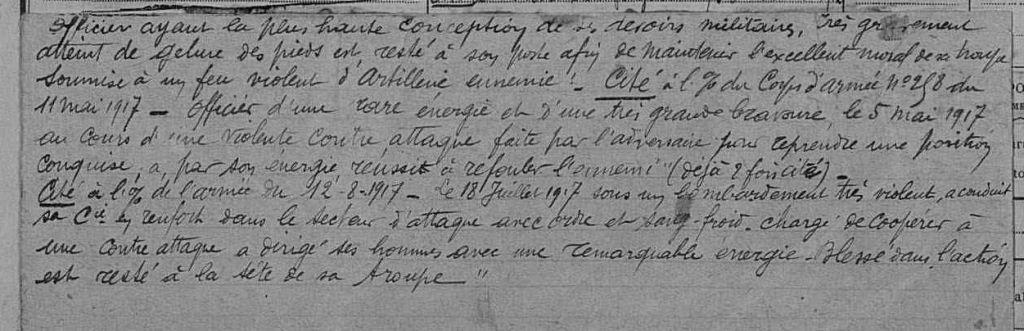 Officier ayant la plus haute conception de ses devoirs militaires, Très gravement
atteint de gelure des pieds est resté à son poste afin de maintenir l'excellent moral de sa troupe
soumise à un feu violent d'artillerie ennemie ! - Cité à l'% du Corps d'armée N° 258 du
11 mai 1917 - Officier d'une rare energie et d'une très grande bravoure, le 5 mai 1917
au cours d'une violente contre attaque faite par l'adversaire pour reprendre une position
conquise, a, par son energie, reussit à refouler l'ennemi" (déjà 2 fois cité) -
Cité à l'% de l'armée du 12-8-1917 - Le 18 Juillet 1917 sous un bombardement très violent, a conduit
sa Cie en renfort dans le secteur d'attaque avec ordre et sang-froid. chargé de coopérer à
une contre attaque a dirigé ses hommes avec une remarquable énergie - Blessé dans l'action
est resté à la tête de sa troupe "